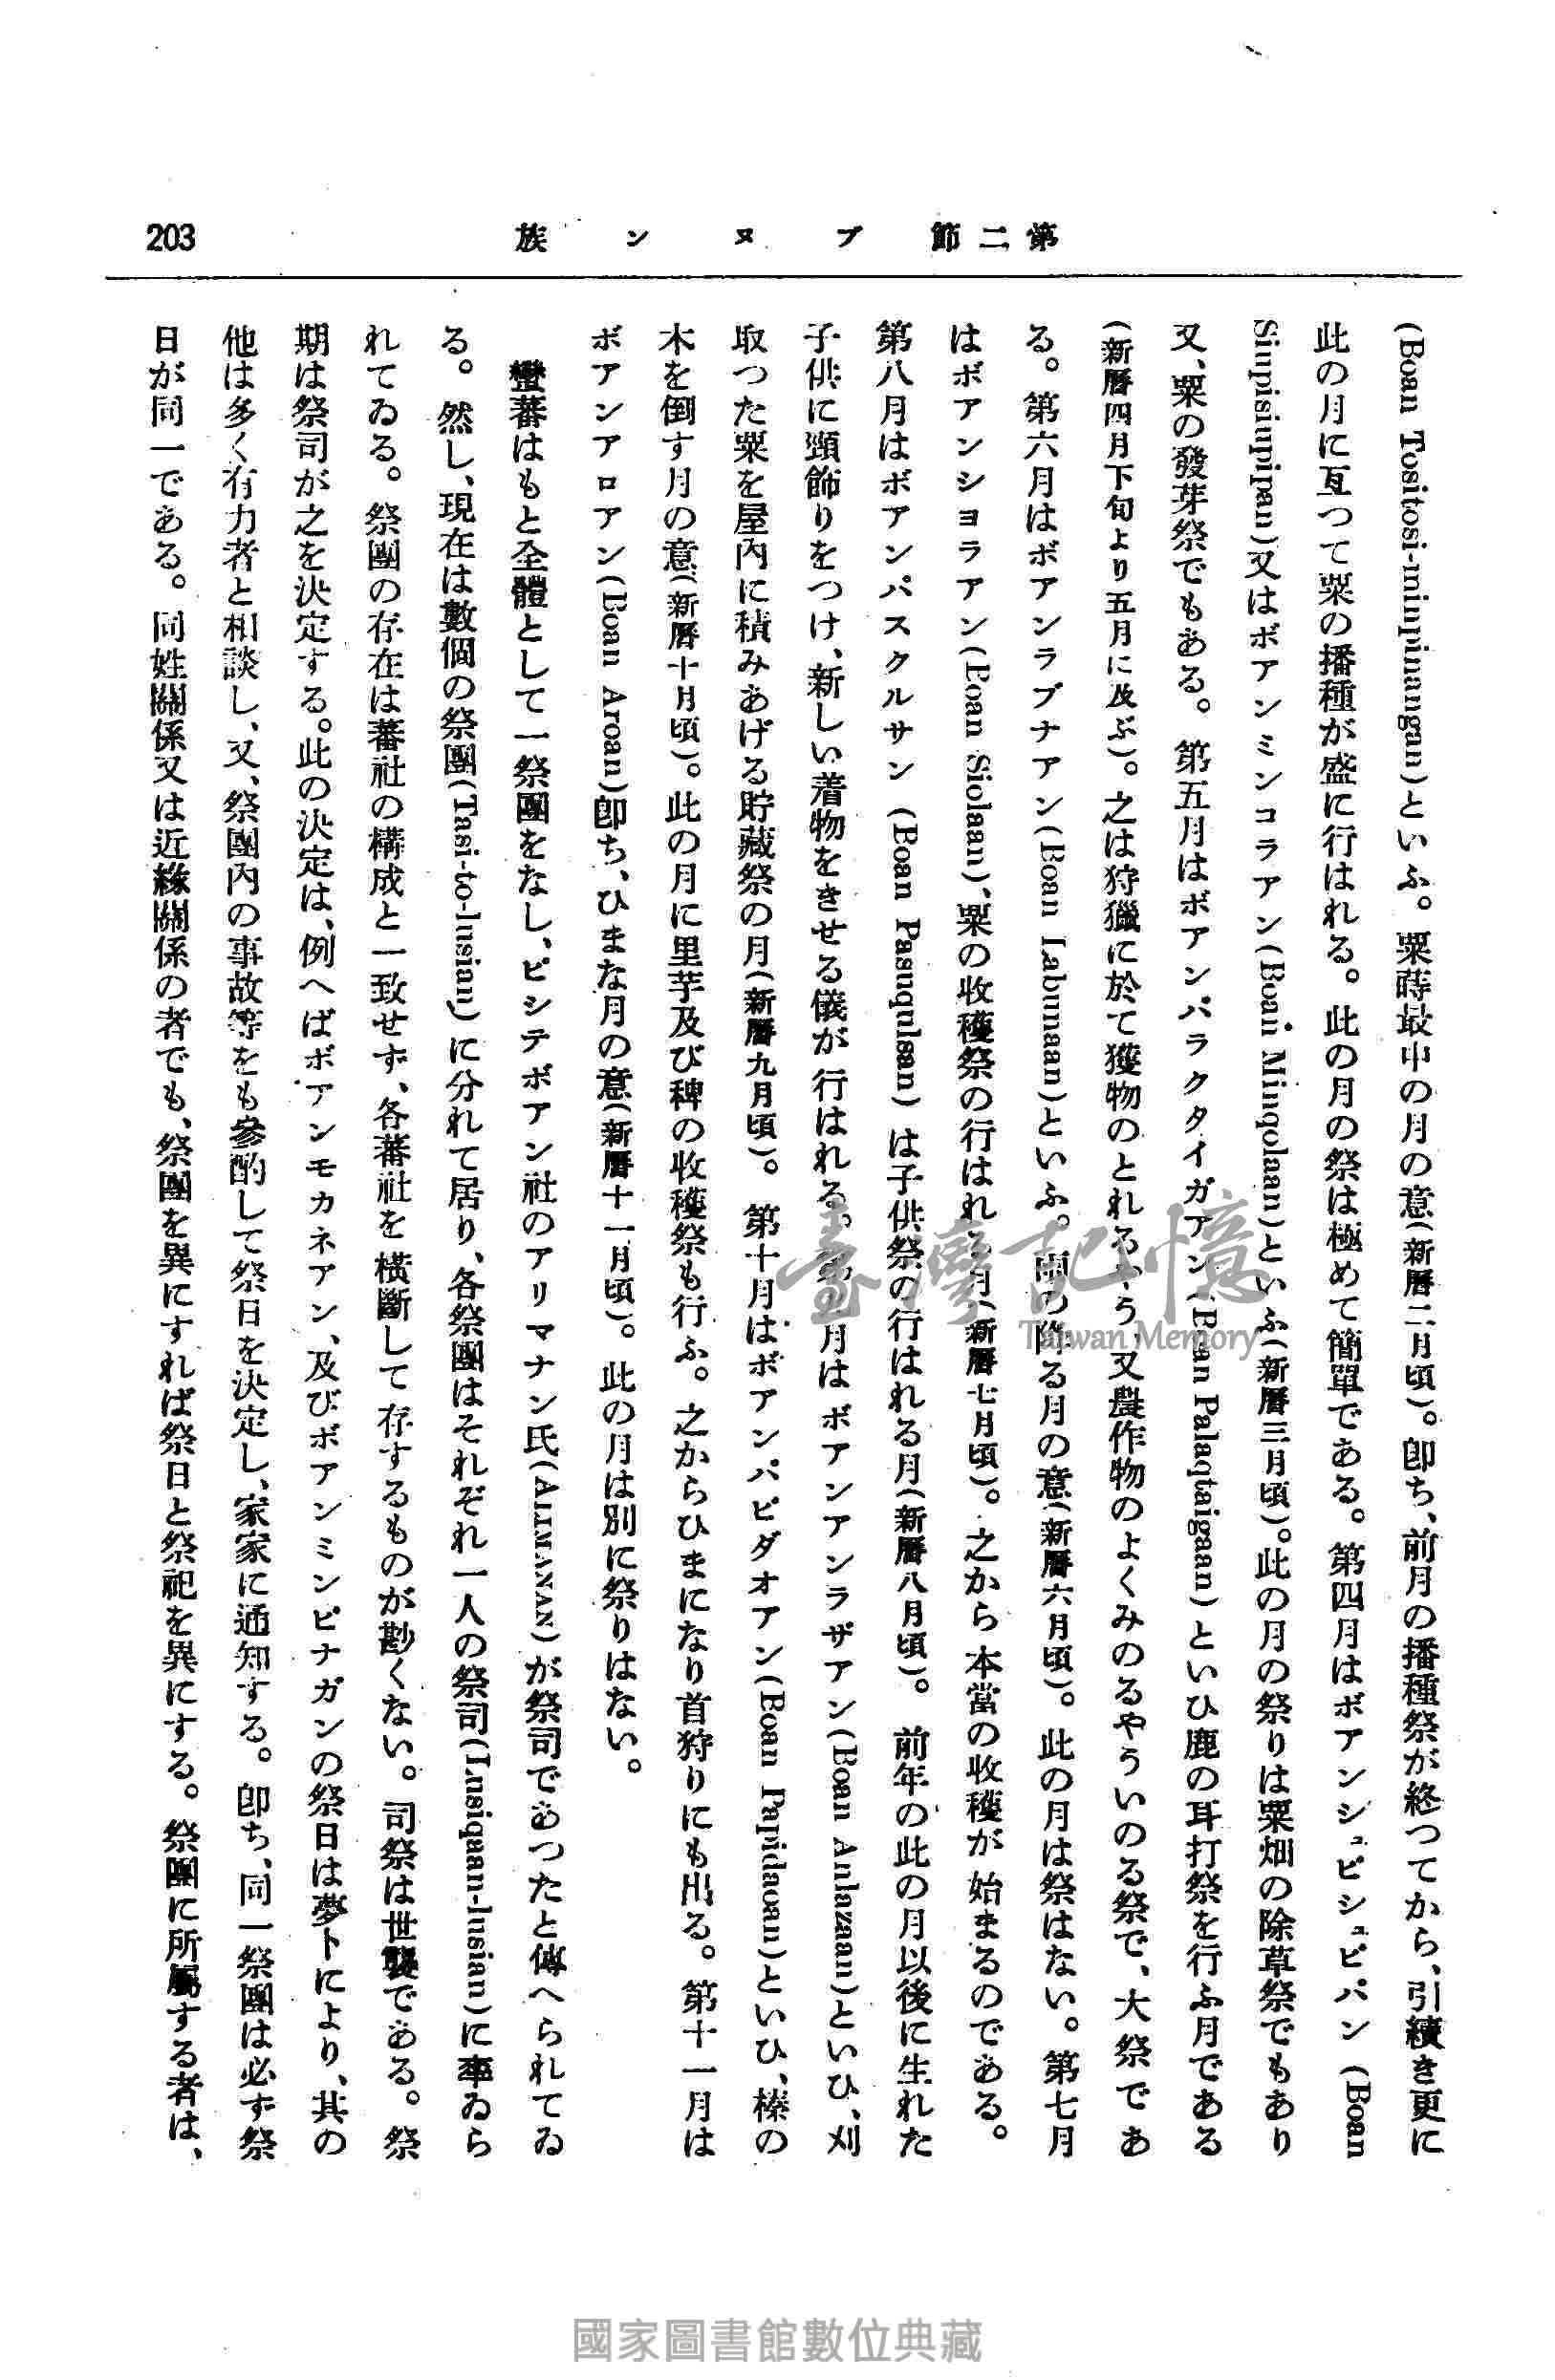 第二節 ブヌン族
203
(Boan Tositosi-minpinangan)といふ。粟蒔最中の月の意(新曆二月頃)。卽ち、前月の播種祭が終つてから、引續き更に
此の月に亙つて粟の播種が盛に行はれる。此の月の祭は極めて簡單である。第四月はボアンシュピシュピパン (Boan
Siupisiupipan)又はボアンミンコラアン(Boan Minqolaan)といふ(新曆三月頃)。此の月の祭りは粟畑の除草祭でもあり
又、粟の發芽祭でもある。第五月はボアンパラクタイガアン(Boan Palaqtaigaan)といひ鹿の耳打祭を行ふ月である
(新曆四月下旬より五月に及ぶ)。之は狩獵に於て獲物のとれるやう、又農作物のよくみのるやういのる祭で、大祭であ
る。第六月はボアンラブナアン(Boan Labunaan)といふ。雨の降る月の意(新曆六月頃)。此の月は祭はない。第七月
はボアンシヨラアン(Boan Siolaan)、粟の收穫祭の行はれる月(新曆七月頃)。之から本當の收穫が始まるのである。
第八月はボアンパスクルサン (Boan Pasuqulsan) は子供祭の行はれる月(新曆八月頃)。前年の此の月以後に生れた
子供に頸飾りをつけ、新しい着物をきせる儀が行はれる。第九月はボアンアンラザアン(Boan Anlazaan)といひ、刈
取つた粟を屋內に積みあげる貯藏祭の月(新曆九月頃)。第十月はボアンパピダオアン(Boan Papidaoan)といひ、榛の
木を倒す月の意(新曆十月頃)。此の月に里芋及び稗の收穫祭も行ふ。之からひまになり首狩りにも出る。第十一月は
ボアンアロアン(Boan Aroan)卽ち、ひまな月の意(新曆十一月頃)。此の月は別に祭りはない。
蠻蕃はもと全體として一祭團をなし、ピシテボアン社のアリマナン氏(ALIMANAN)が祭司であつたと傳へられてゐ
る。然し、現在は數個の祭團(Tasi-to-lusian)に分れて居り、各祭團はそれぞれ一人の祭司(Lusiqaan-lusian)に率ゐら
れてゐる。祭團の存在は蕃社の構成と一致せず、各蕃社を橫斷して存するものが尠くない。司祭は世襲である。祭
期は祭司が之を決定する。此の決定は、例へばボアンモカネアン、及びボアンミンピナガンの祭日は夢卜により、其の
他は多く有力者と相談し、又、祭團內の事故等をも參酌して祭日を決定し、家家に通知する。卽ち、同一祭團は必ず祭
日が同一である。同姓關係又は近緣關係の者でも、祭團を異にすれば祭日と祭祀を異にする。祭團に所屬する者は、
臺灣記憶
Taiwan Memory
國家圖書館數位典藏